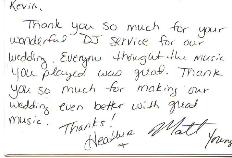 Kevin,
Thank you so much for your
wonderful DJ service for our
wedding. Everyone thought the music
you played was great. Thank
you so much for making our
wedding even better with great
music.
Thanks!
Heather
+ Matt Young